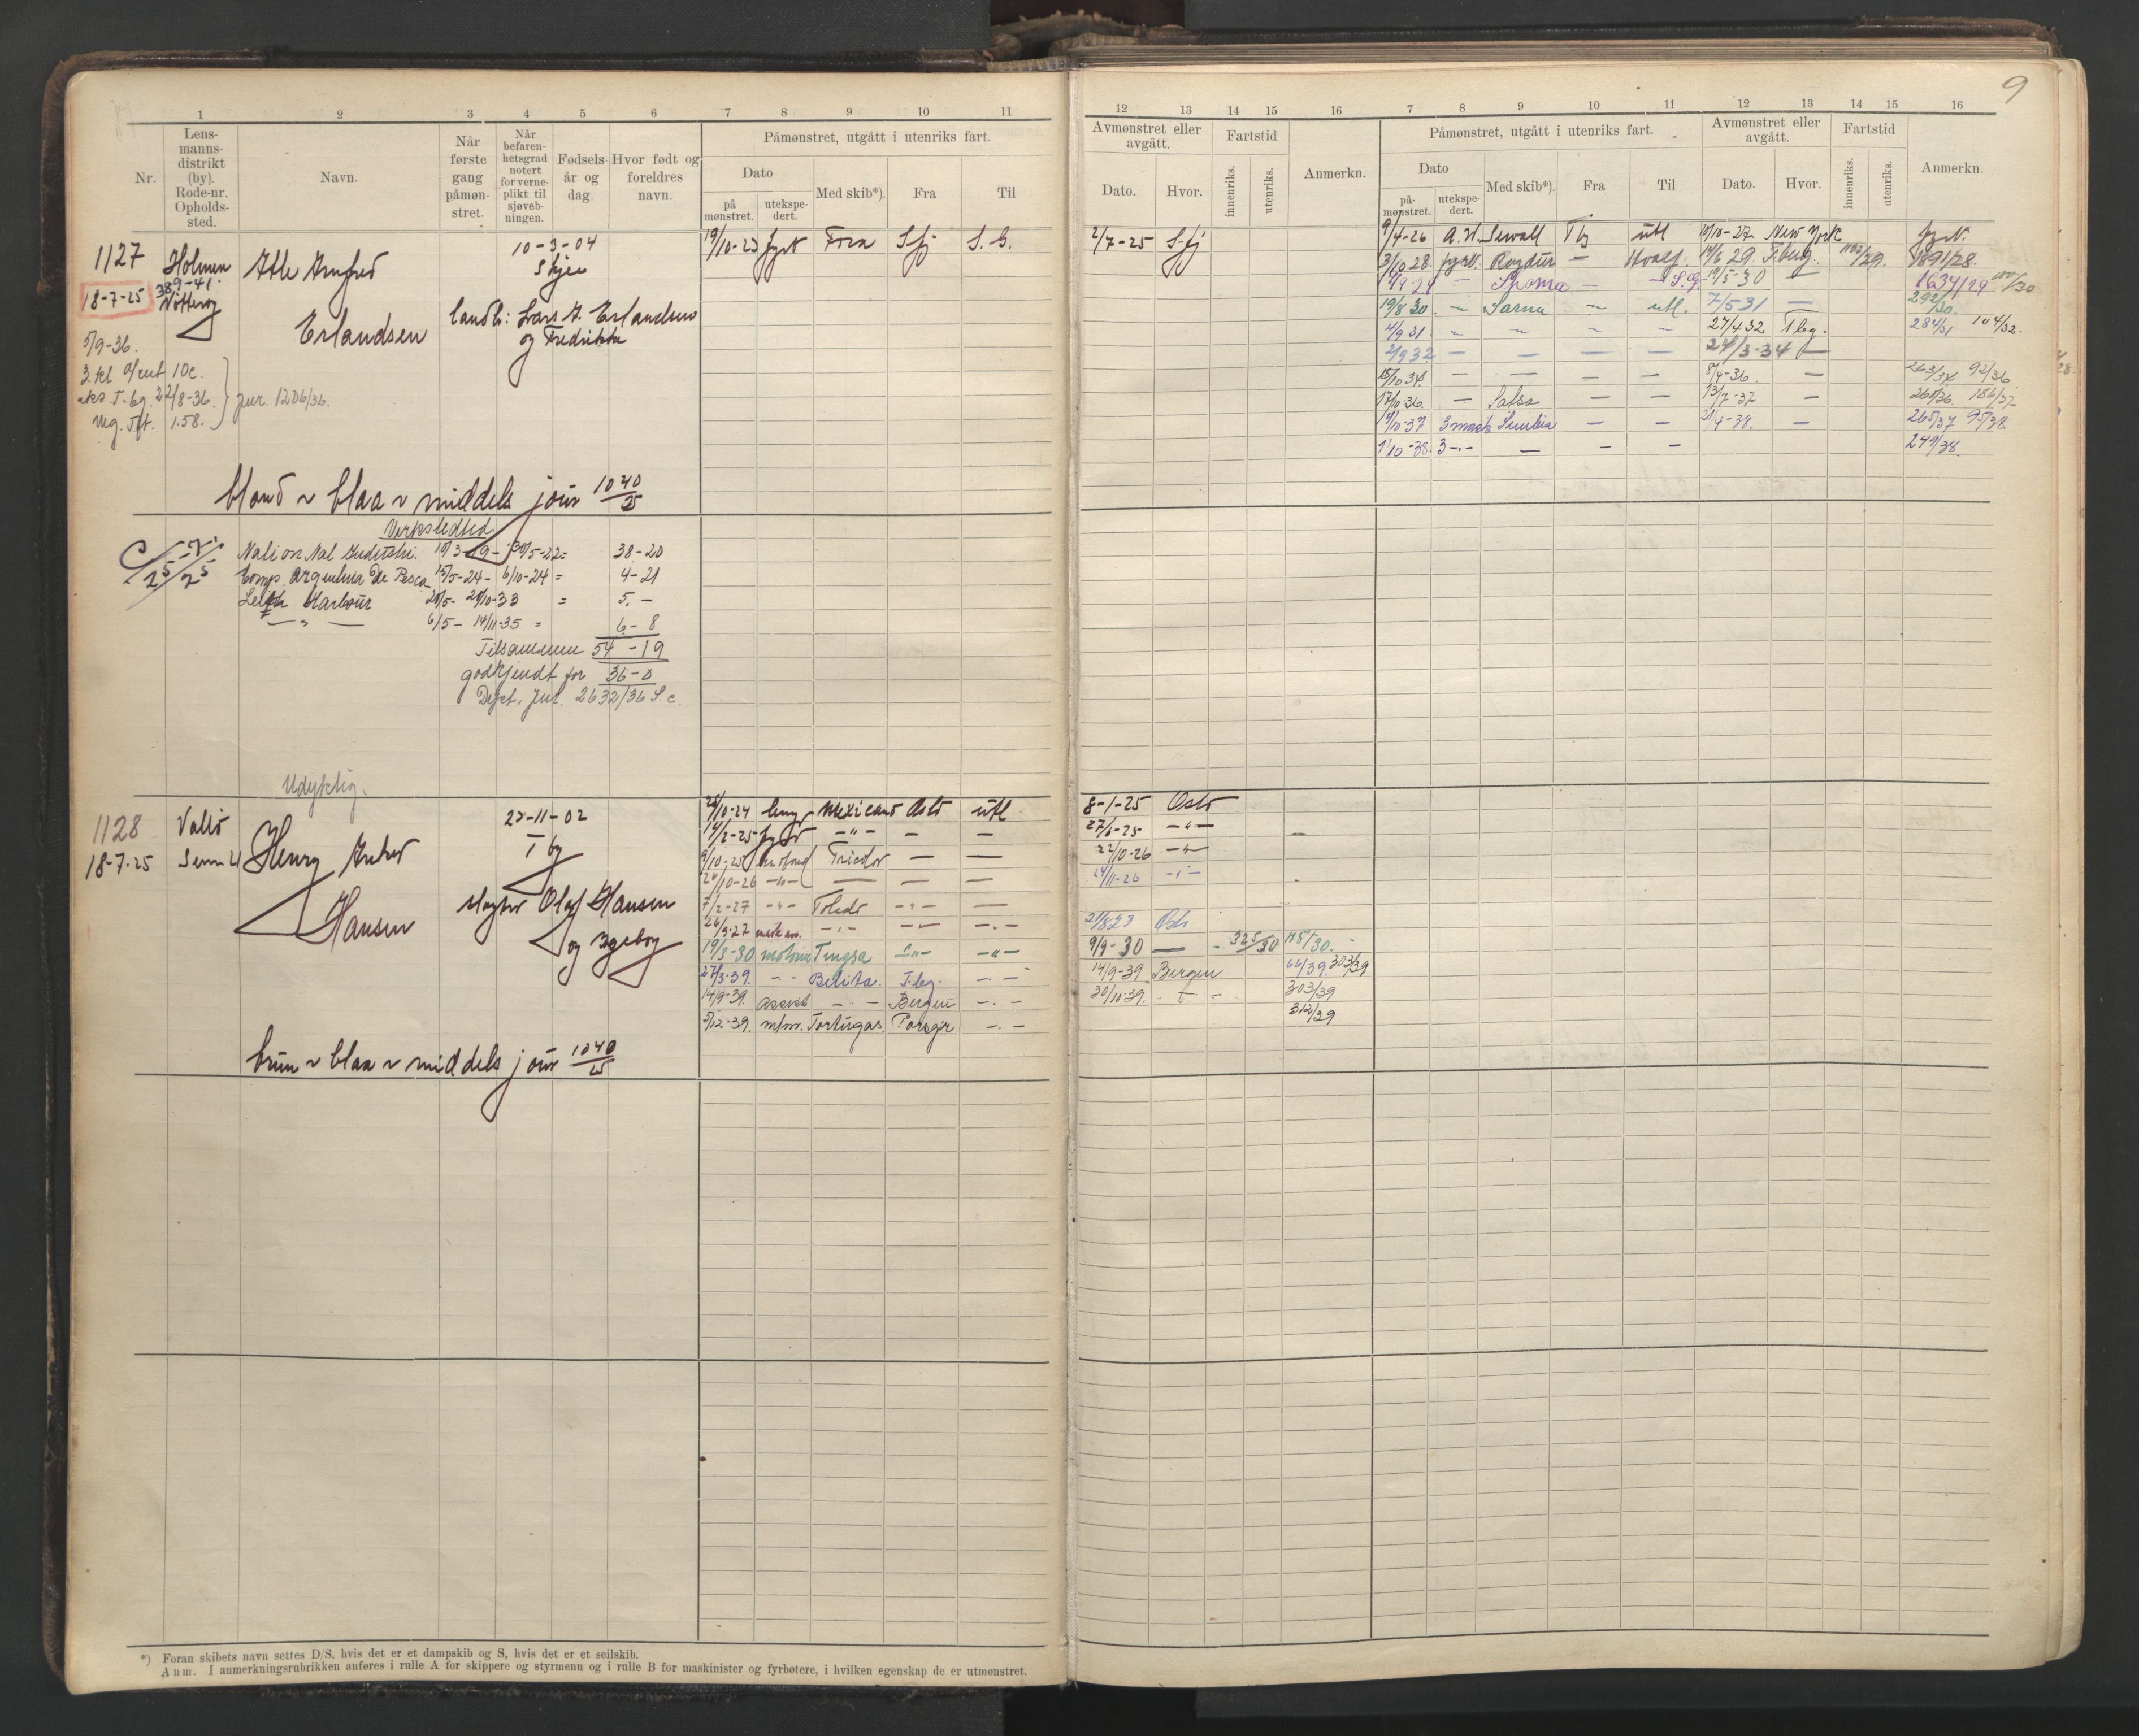 9
1 2 3 4 5 6 7 8 9 10 11
Nr.
Lens-
manns-
distrikt
(by).
Rode-nr.
Opholds-
sted.
Navn.
Når
første
gang
påmøn-
stret.
Når
befaren-
hetsgrad
notert
for verne-
plikt til
sjøveb-
ningen.
Fødsels-
år og
dag.
Hvor født og
foreldres
navn.
Påmønstret, utgått i utenriks fart.
Dato
på
mønstret.
utekspe-
dert.
Med skib*).
Fra
Til
12 13 14 15 16 7 8 9 10 11 12 13 14 15 16
Avmønstret eller
avgått.
Dato.
Hvor.
Fartstid
innenriks.
utenriks.
Anmerkn.
Påmønstret, utgått i utenriks fart.
Dato
på-
mønstret.
utekspe-
dert.
Med skib*).
Fra
Til
Avmønstret eller
avgått.
Dato.
Hvor.
Fartstid
innenriks.
utenriks.
Anmerkn.
1127
18-7-25
Holmen
389-41.
Nøtterøy
Erlandsen
10-3-04
Skjee
landb: Lars A. Erlandsen
og Fredrikke
5/9-36.
22/8-36.
jur. 1206/36.
1.58.
19/10-23 fyrb Fora S.fj S. G. 2/7-25 S.fj
9/4-26 A. W. Sewall Tbg utl 10/10-27 New York fyrb.
3/10 28. fyrb. Ragdur — Hvalf. 14/6 29. T.berg. 1891/28.
— Thoma — S.G. 19/5-30 — 1634/29
19/8 30 — Sarna — utl. 7/5 31 — 292/30.
4/9 31. 27/4 32 Tbg. 284/31 104/32.
2/9 32 — — — — 24/3-34 —
15/10 34. — — — — 8/4-36. — 263/34 92/36
17/10-36. — Salsa — — 13/7-37 —
10-37 3 mask — — 4-38. — 265/37 95/38
1/10-38. 3 - - — — — 249/38.
blond ~ blaa ~ middels jour 1040/25
Verkstedtid
38-20
Comp. Argentina De Pesca 15/5-24 - 6/10-24 = 4-21
Leith Harbour = 5. -
6/5 - 14/11-35 = 6-8
Tilsammen 54-19
godkjendt for 36-0
Dept. jur. 2632/36 S. c.
Udyktig.
1128
18-7-25
Vallø
Sem
Henry
Hansen
27-11-02
Tbg
Olaf Hansen
og Ingeborg
10-24 Mexicano Oslo utl 8-1-25 Oslo
14/2-25 - " - — — 27/6-25 - " -
10-25 Tricolor — — 22/10-26 - " -
10-26 - " - — — — 11-26 - " -
7/2-27 - " - Toledo - " - — 21/8 23 Oslo
26/9-27 - . - - " - - . - 9/9-30 — 325/30
19/3-30 Tungsa - " - - " - 14/9-39 Bergen 66/39. 303/39
27/3-39. - - Belita. T.bg. - . - 30/10-39. 303/39
14/9-39. assist - . - Bergen - . - 312/39
5/12-39. m/m. Tortugas. Porsgr - . -
brun ~ blaa ~ middels jour 1040/25
*) Foran skibets navn settes D/S, hvis det er et dampskib og S, hvis det er et seilskib.
Anm. I anmerkningsrubrikken anføres i rulle A for skippere og styrmenn og i rulle B for maskinister og fyrbøtere, i hvilken egenskap de er utmønstret.